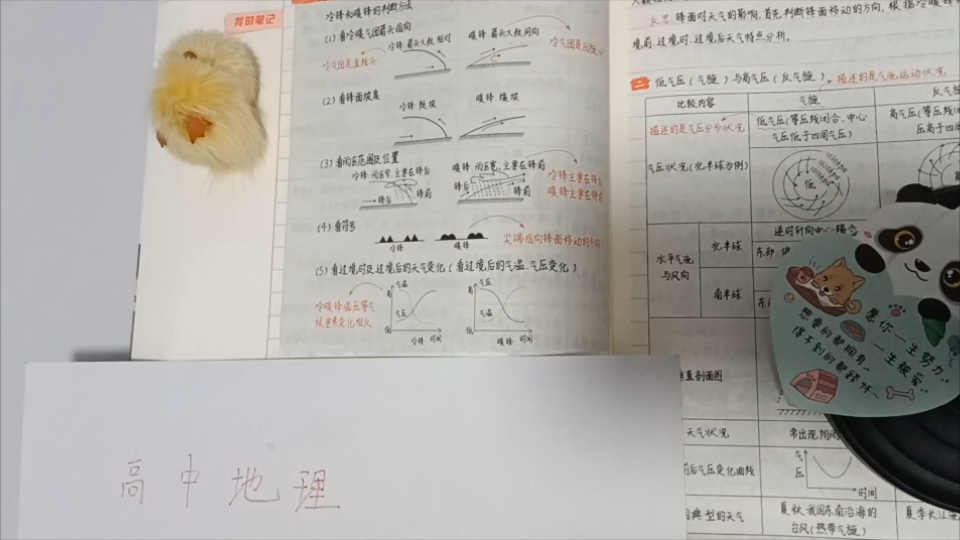 我的笔记
冷锋和暖锋的判断方法
(1) 看冷暖气团箭头指向
冷锋 箭头大致相对
暖锋 箭头同向
(2) 看锋面坡度
冷锋 陡坡
暖锋 缓坡
(3) 看雨区范围及位置
冷锋 雨区窄,主要在锋后
锋后
锋前
暖锋 雨区宽,主要在锋前
锋后
锋前
冷锋主要在锋后
暖锋主要在锋前
(4) 看符号
冷锋
暖锋
尖端指向锋面移动的方向
(5) 看过境时及过境后的天气变化(看过境后的气温、气压变化)
冷暖锋温压等气
候要素变化相反
高
低
气压
气温
冷锋
时间
高
低
气压
气温
暖锋
时间
高中地理
反思 锋面对天气的影响,首先判断锋面移动的方向,根据冷暖锋
境前、过境时、过境后天气特点分析。
二 低气压(气旋)与高气压(反气旋)
描述的是气流运动状况
比较内容
气旋
反气
描述的是气压分布状况
低气压(等压线闭合,中心
气压低于四周气压)
高气压(等压
压高于四
气压状况(北半球为例)
低
水平气流
与风向
北半球
逆时针向中心辐合
南半球
垂直剖面图
天气状况
常出现阴雨
后气压变化曲线
气
压
时间
典型的天气
夏秋,我国东南沿海的
台风(热带气旋)
夏季长江
愿你一生努力
一生被爱
想要的都拥有
得不到的都释怀~